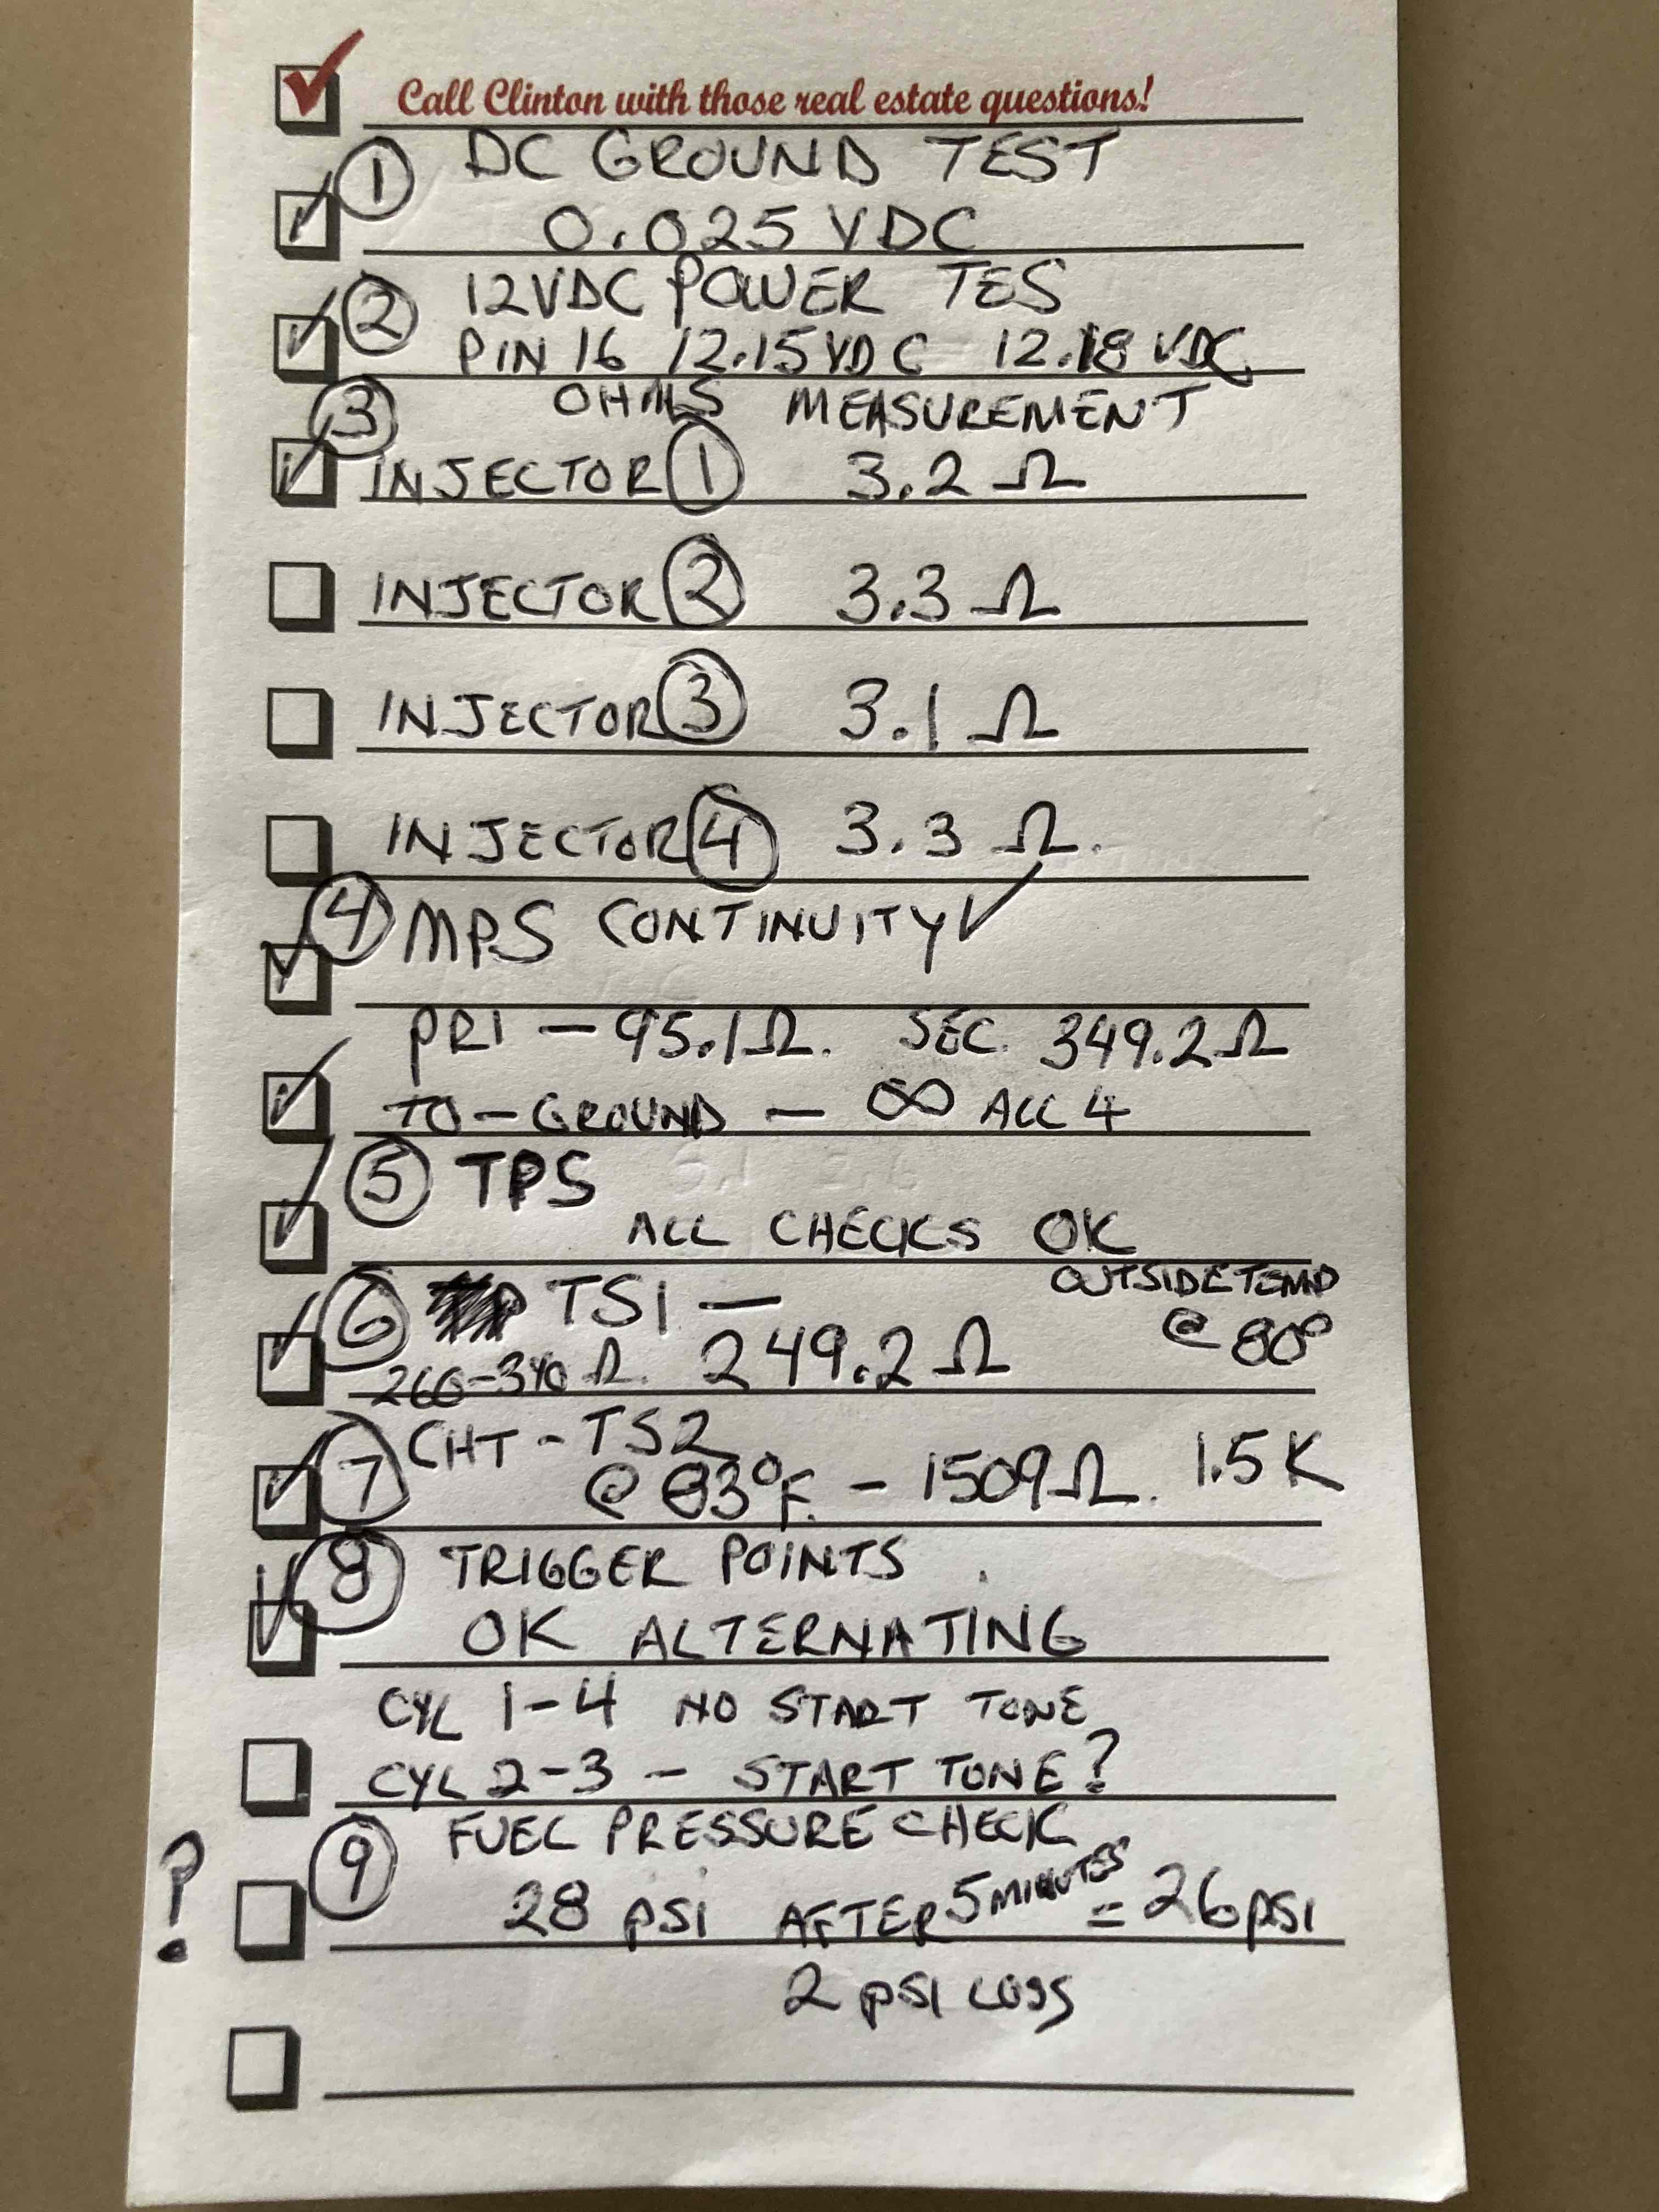 Call Clinton with those real estate questions!
① DC GROUND TEST
0.025 VDC
② 12VDC POWER TES
PIN 16 12.15 VDC 12.18 VDC
③ OHMS MEASUREMENT
INJECTOR ① 3.2 Ω
INJECTOR ② 3.3 Ω
INJECTOR ③ 3.1 Ω
INJECTOR ④ 3.3 Ω.
④ MPS CONTINUITY ✓
PRI — 95.1Ω. SEC. 349.2Ω
TO — GROUND — ∞ ALL 4
⑤ TPS
ALL CHECKS OK
⑥ TS1 — OUTSIDE TEMP
@ 80°
260-340 Ω. 249.2 Ω
⑦ CHT - TS2
@ 83°F. - 1509Ω. 1.5K
⑧ TRIGGER POINTS
OK ALTERNATING
CYL 1-4 NO START TONE
CYL 2-3 — START TONE?
⑨ FUEL PRESSURE CHECK
? 28 PSI AFTER 5 MINUTES = 26 PSI
2 PSI LOSS